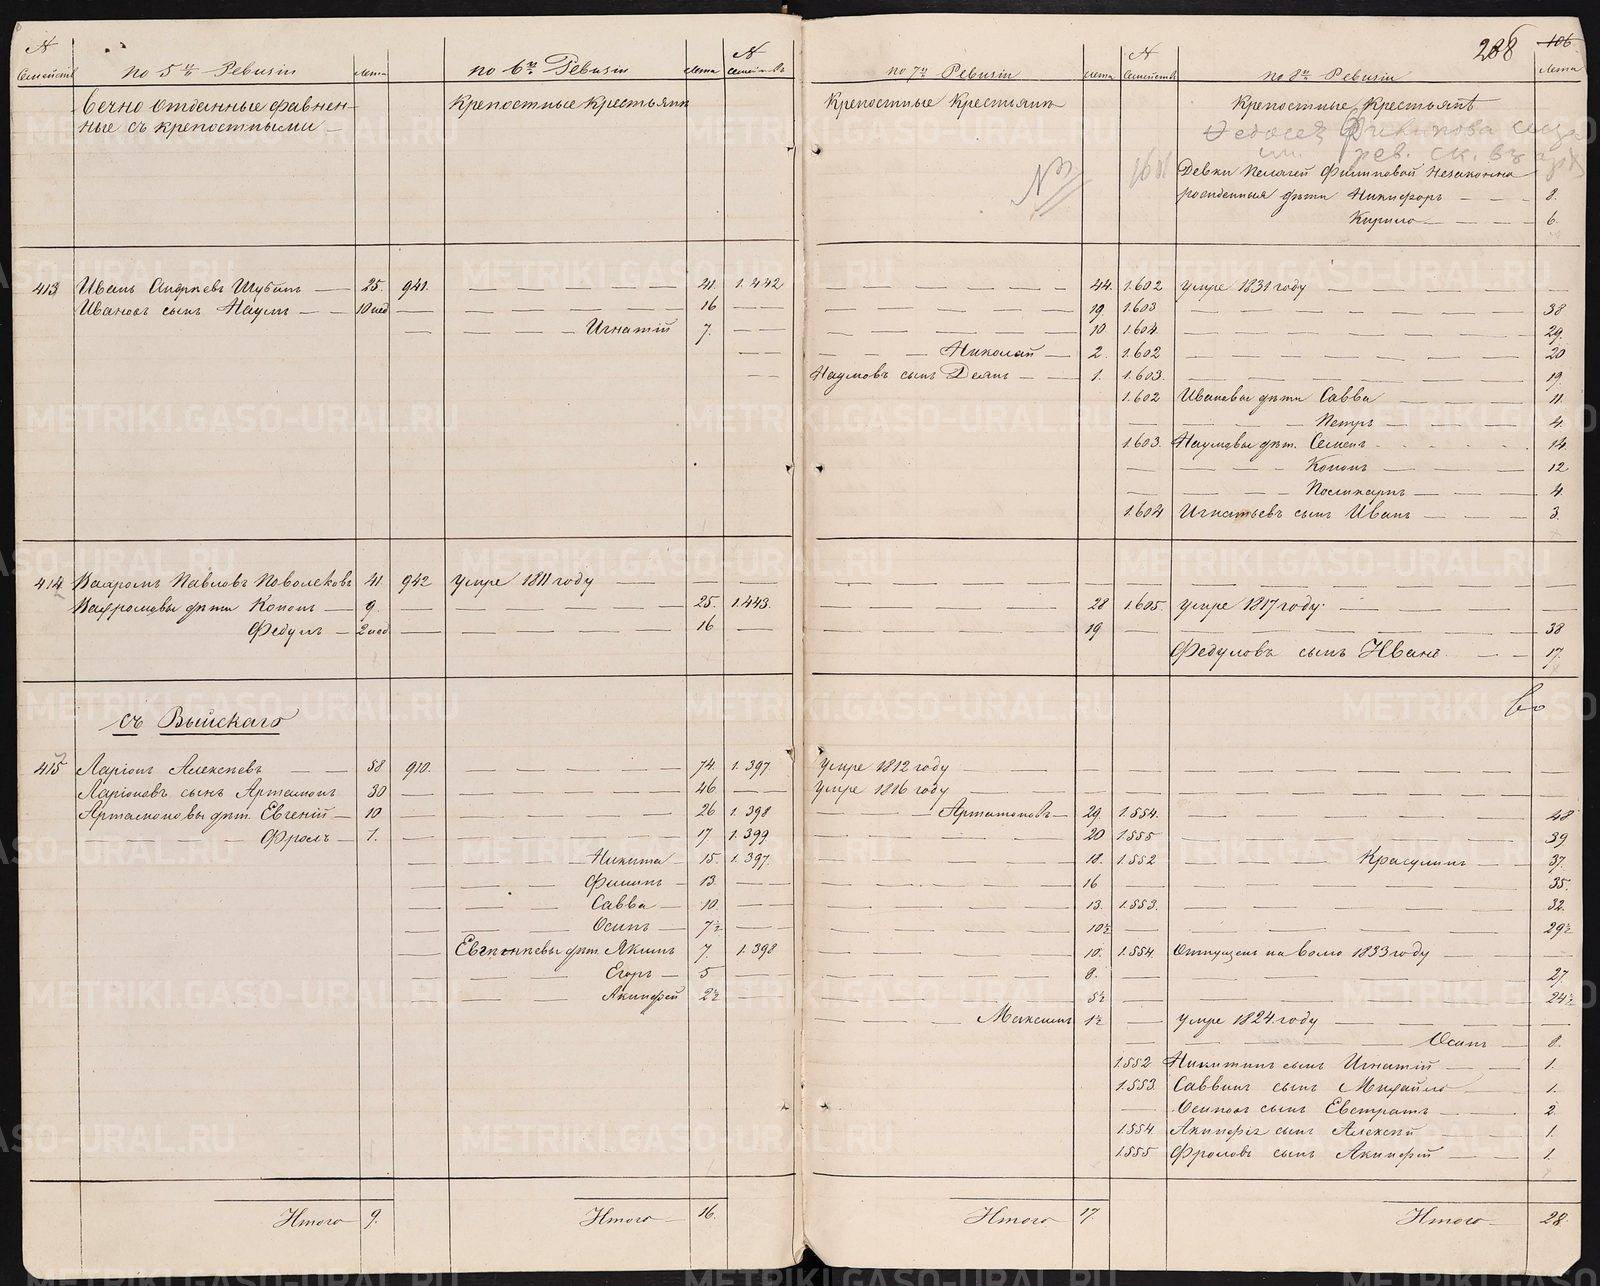 N Семействъ по 5й Ревизiи Лета по 6й Ревизiи Лета N Семействъ по 7й Ревизiи Лета N Семействъ по 8й Ревизiи Лета
288 106
Вечно отданные Крепостные Крестьяне Крепостные Крестьяне Крепостные Крестьянѣ
ные съ крепостными —
N3
Девки Пелагеи Филиповой незаконно
рожденныя дѣти Никифоръ — 8.
Кирило — 6.
413 Иванъ Андреевъ Шубинъ — 25. 941. — 41. 1.442 — 44. 1.602 умре 1831 году —
Ивановъ сынъ Наумъ — 10 нед — 16 — 19 1.603 — 38
— Игнатiй 7. — 10 1.604 — 29.
— Николай — 2. 1.602 — 20
— Наумовъ сынъ Демянъ — 1. 1.603. — 19.
1.602 Ивановы дѣти Савва — 11.
— Петръ — 4.
1.603. Наумовы дѣт. Семенъ — 14.
— Кононъ — 12
— Поликарпъ — 4.
1.604 Игнатьевъ сынъ Иванъ — 3.
414 Павловъ 41. 942 умре 1811 году —
дѣти Кононъ — 9. — 25. 1.443. — 28 1.605. умре 1817 году —
Федулъ — 2 нед — 16 — 19 — 38
Федуловъ сынъ Иванъ — 17.
съ Выйскаго
Во
415 Ларiонъ Алексѣевъ — 58 910. — 74. 1.397 умре 1812 году —
Ларiоновъ сынъ Артамонъ 30 — 46 — умре 1816 году —
Артамоновы дѣт. Евгенiй — 10 — 26 1.398 — Артамоновъ — 29. 1.554. — 48
— Фролъ — 1. — 17. 1.399 — 20 1.555 — 39.
— Никита — 15. 1.397 — 18. 1.552 — Красулинъ — 37.
— Филипъ — 13. — 16 — 35.
— Савва — 10 — 13. 1.553. — 32.
— Осипъ — 7½ — 10½ — 29½
— дѣт. Якимъ 7. 1.398 — 10. 1.554 Отпущенъ на волю 1833 году —
— Егоръ — 5 — 8. — 27.
— Акинфей 2½ — 5½ — 24½
— Максимъ 1½ — умре 1824 году —
— Осипъ — 8.
1.552 Никитинъ сынъ Игнатiй — 1.
1.553. Саввинъ сынъ Михайло — 1.
— Осиповъ сынъ Евстратъ — 2
1.554 Акинфiя сынъ Алексѣй — 1.
1.555 Фроловъ сынъ Акинфей — 1.
Итого 9. Итого — 16. Итого 17. Итого — 28.
METRIKI.GASO-URAL.RU